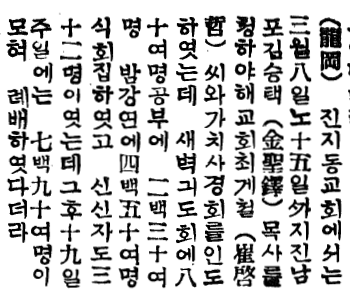 (龍岡) 진지동교회에서는
三월八일노十五일ᄭᅡ지진남
포김승택(金聖鐸)목사를
쳥하야해교회최게철(崔啓
哲)씨와가치사경회를인도
하엿는데 새벽긔도회에八
十여명공부에 二백三十여
명 밤강연에四백五十여명
식회집하엿고 신신자도三
十二명이엿는데그후十九일
주일에는 七백九十여명이
모혀 례배하엿다더라